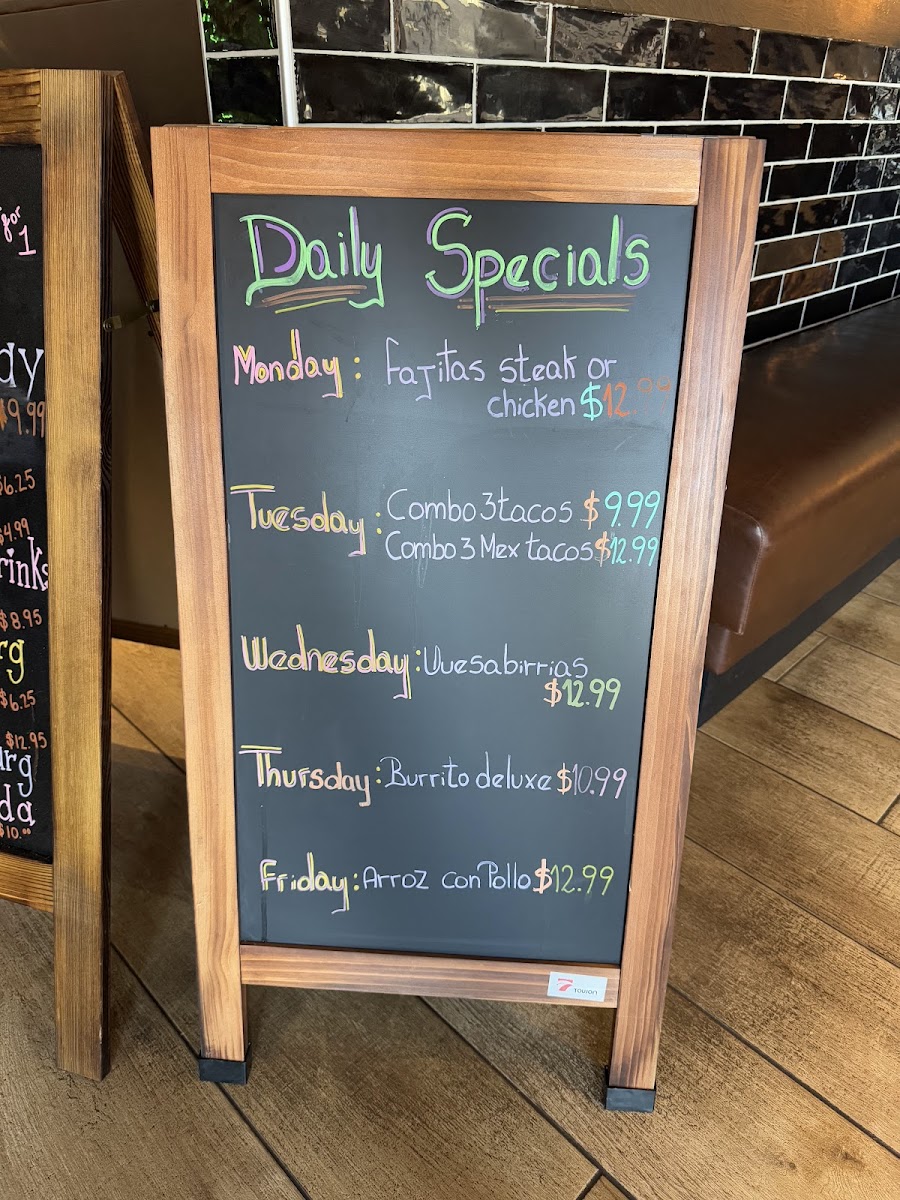 Daily Specials
Monday: Fajitas steak or
chicken $12.99
Tuesday: Combo 3 tacos $9.99
Combo 3 Mex tacos $12.99
Wednesday: Quesabirrias
$12.99
Thursday: Burrito deluxe $10.99
Friday: Arroz con Pollo $12.99
TOWON
for
1
$9.99
$6.25
$4.99
$8.95
$6.25
$12.95
$10.00